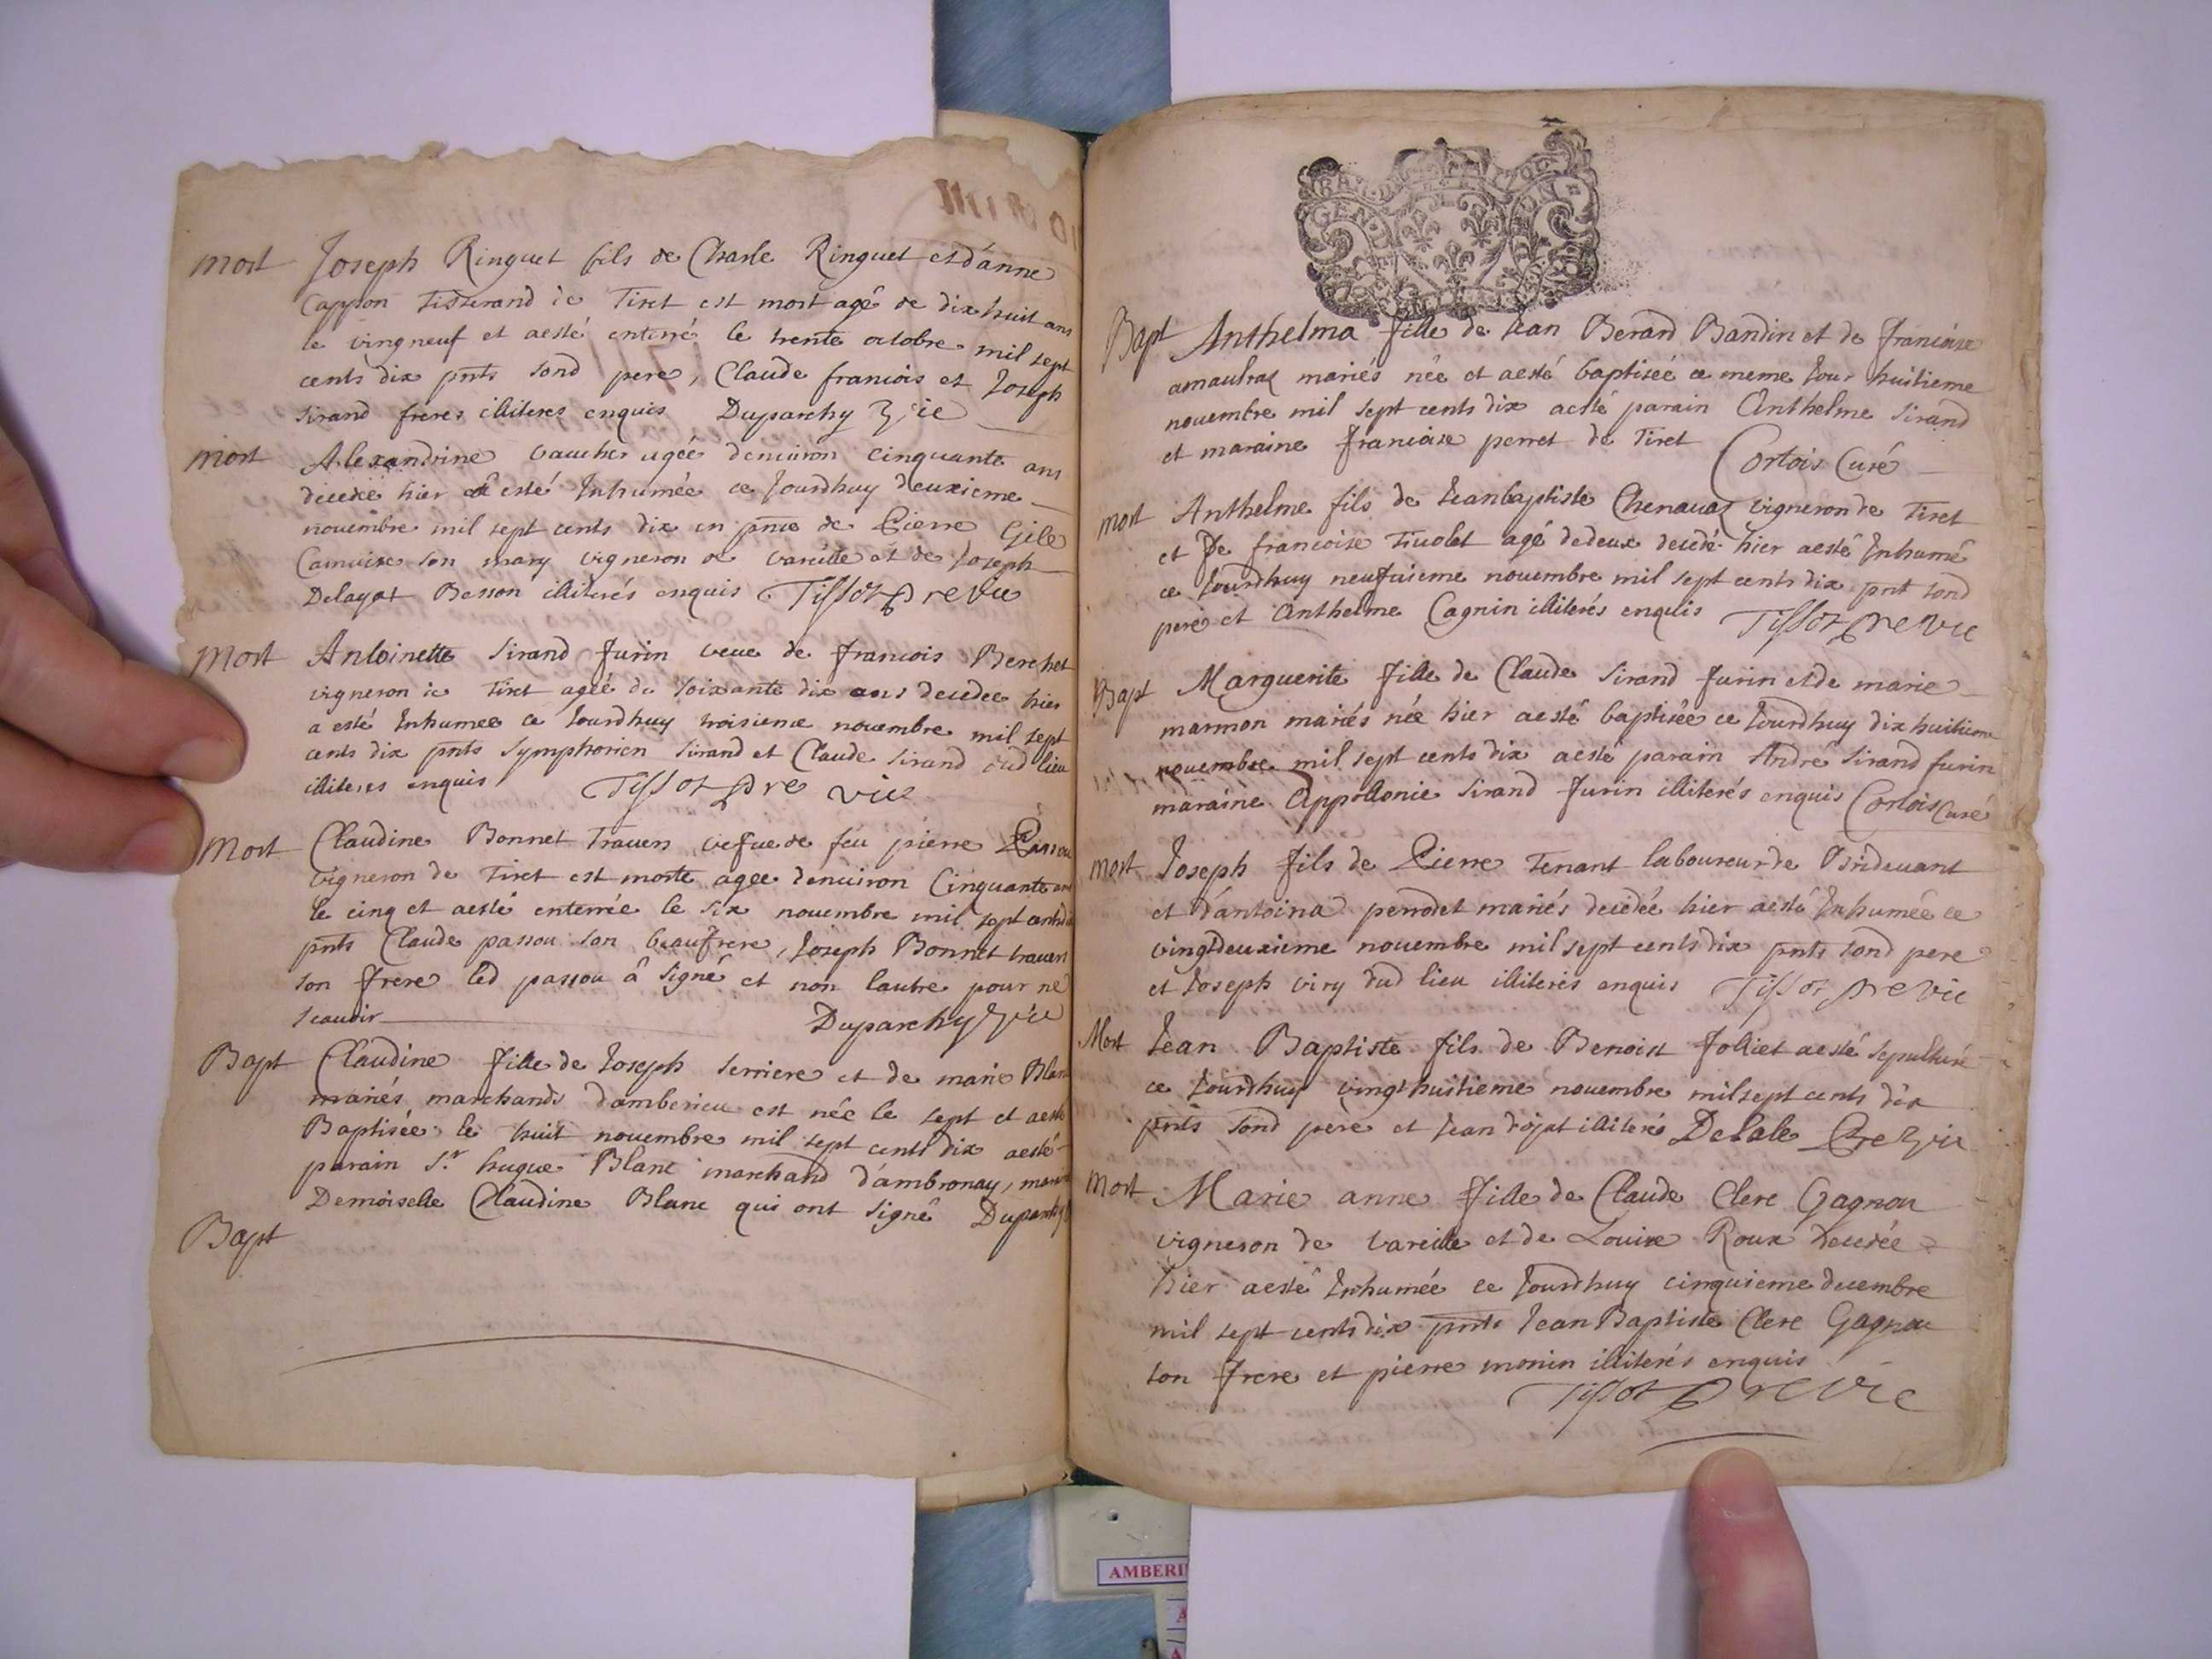 mort Joseph Ringuet fils de Charle Ringuet et d'anne
Cappon Tisserand de Tiret est mort agé de dix huit ans
le vingneuf et aesté enterré le trente octobre mil sept
cents dix pnts sond pere, Claude francois et Joseph
Sirand freres illiteres enquis Duparchy vic
mort Alexandrine vaucher agée denuiron cinquante ans
decedée hier a esté Inhumée ce Jourdhuy deuxieme
nouembre mil sept cents dix en pnce de Pierre Gile
son mary vigneron de vareille et de Joseph
Delagot Besson illiterés enquis Tissot pre vic
mort Antoinette Sirand furin veue de francois Berchet
vigneron de Tiret agée de soixante dix ans decedee hier
a esté Inhumee ce Jourdhuy troisieme nouembre mil sept
cents dix pnts Symphorien Sirand et Claude Sirand dud lieu
illiteres enquis Tissot pre vic
mort Claudine Bonnet Trauers vefue de feu pierre Passou
vigneron de Tiret est morte agee denuiron Cinquante ans
le cinq et aesté enterrée le six nouembre mil sept cents dix
pnts Claude passou son beaufrere, Joseph Bonnet trauers
son frere led passou â signé et non lautre pour ne
scauoir Duparchy vic
Bapt Claudine fille de Joseph Serriere et de marie Blanc
mariés marchands damberieu est née le sept et aesté
Baptisée le huit nouembre mil sept cents dix aesté
parain Sr hugue Blanc marchand d'ambronay, maraine
Demoiselle Claudine Blanc qui ont signé Duparchy
Bapt
GEN
Bapt Anthelma fille de Jean Berard Bandin et de francoise
amaudraz mariés née et aesté baptisée ce meme Jour huitieme
nouembre mil sept cents dix aesté parain Anthelme Sirand
et maraine francoise perret de Tiret Cortois Curé
mort Anthelme fils de Jeanbaptiste Chenauaz vigneron de Tiret
et de francoise Tiuolet agé dedeux decedé hier aesté Inhumé
ce Jourdhuy neufuieme nouembre mil sept cents dix pnt sond
pere et Anthelme Cagnin illiterés enquis Tissot pre vic
Bapt Marguerite fille de Claude Sirand furin et de marie
marmon mariés née hier aesté baptisée ce Jourdhuy dix huitieme
nouembre mil sept cents dix aesté parain André Sirand furin
maraine Appollonie Sirand furin illiterés enquis Cortois Curé
mort Joseph fils de Pierre Tenant laboureur de
et d'antoina perrodet mariés decedée hier aesté Inhumée ce
vingtdeuxieme nouembre mil sept cents dix pnts sond pere
et Joseph viry dud lieu illiterés enquis Tissot pre vic
Mort Jean Baptiste fils de Benoist Jolliet aesté sepulturé
ce Jourdhuy vingt huitieme nouembre mil sept cents dix
pnts sond pere et Jean dojat illiterés Delale Pre vic
mort Marie anne fille de Claude Clerc Gagnou
vigneron de vareille et de Louise Roux decedée
hier aesté Inhumée ce Jourdhuy cinquieme decembre
mil sept cents dix pnts Jean Baptiste Clerc Gagnou
son frere et pierre monin illiterés enquis
Tissot pre vic
AMBERI